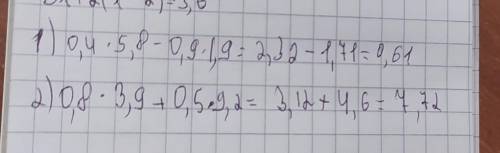 1) 0,4 · 5,8 - 0,9 · 1,9 = 2,32 - 1,71 = 0,61
2) 0,8 · 3,9 + 0,5 · 9,2 = 3,12 + 4,6 = 7,72